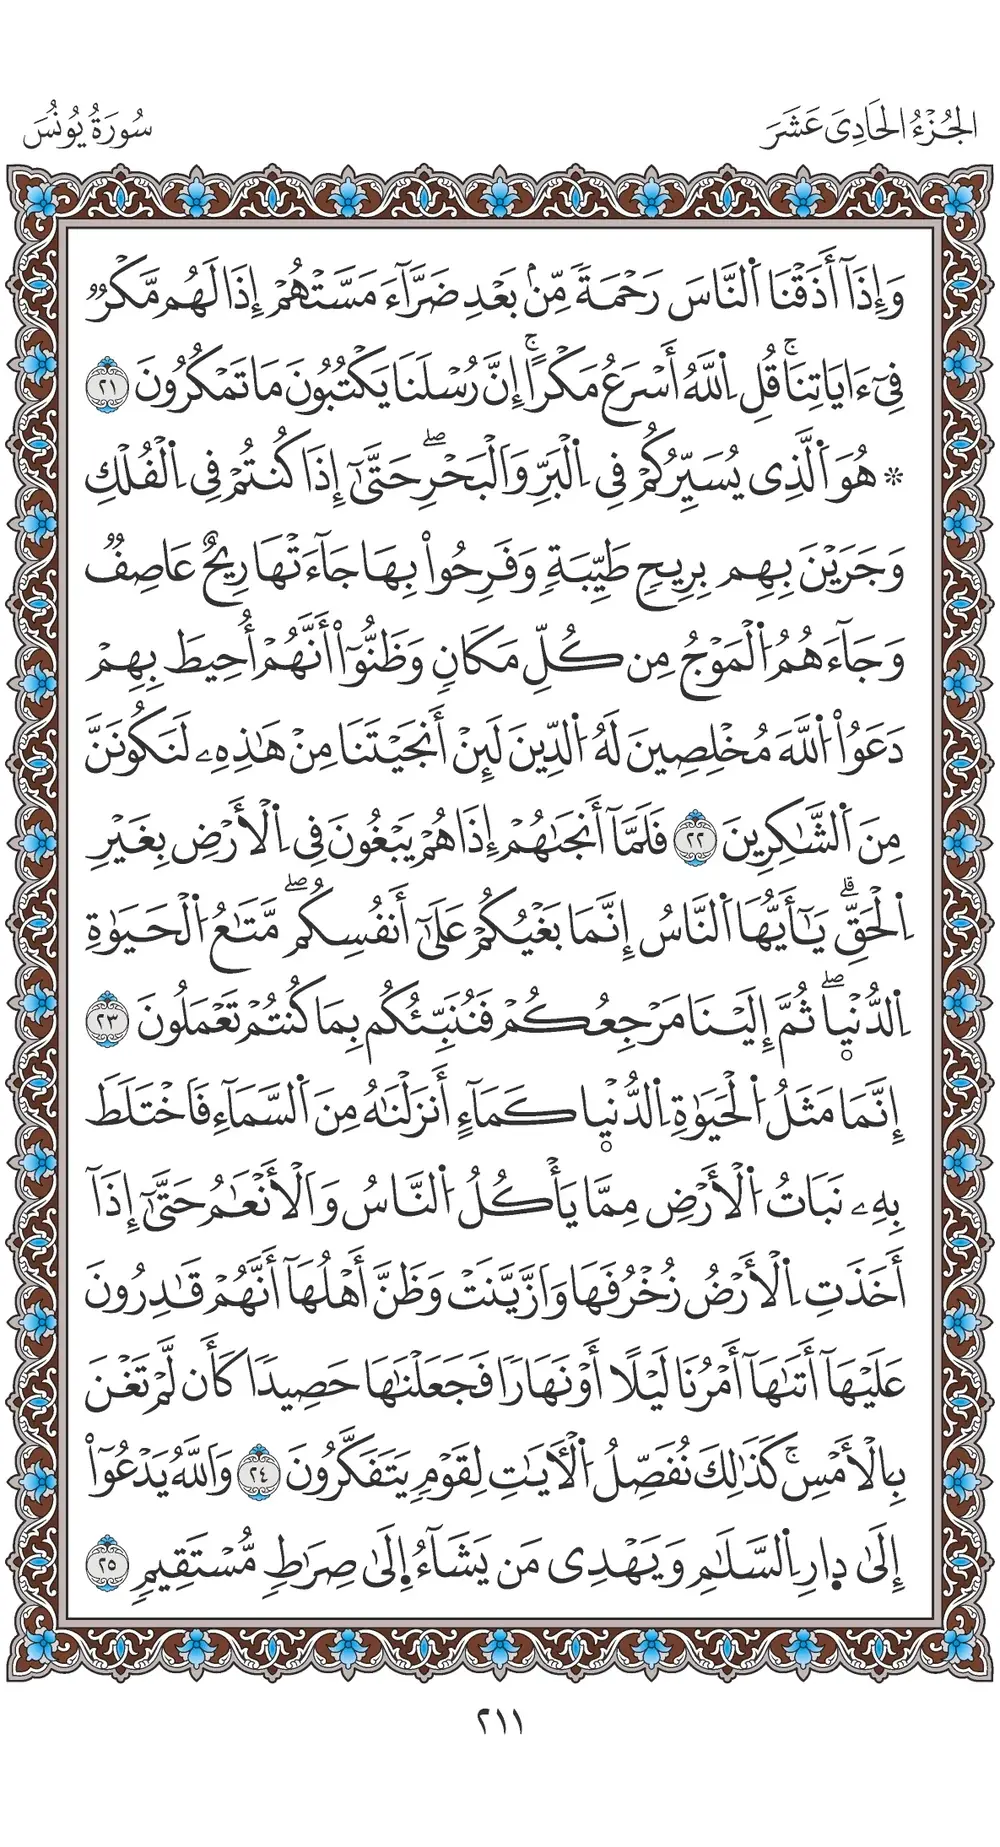 الجُزْءُ الحَادِىَ عَشَرَ
سُورَةُ يُونُسَ
وَإِذَآ أَذَقْنَا اَ۬لنَّاسَ رَحْمَةٗ مِّنۢ بَعْدِ ضَرَّآءَ مَسَّتْهُمْ إِذَا لَهُم مَّكْرٞ
فِىٓ ءَايَاتِنَاۚ قُلِ اِ۬للَّهُ أَسْرَعُ مَكْرًاۚ إِنَّ رُسْلَنَا يَكْتُبُونَ مَا تَمْكُرُونَ ٢١
* هُوَ اَ۬لَّذِى يُسَيِّرُكُمْ فِى اِ۬لْبَرِّ وَالْبَحْرِۖ حَتَّىٰٓ إِذَا كُنتُمْ فِى اِ۬لْفُلْكِ
وَجَرَيْنَ بِهِم بِرِيحٖ طَيِّبَةٖ وَفَرِحُواْ بِهَا جَآءَتْهَا رِيحٌ عَاصِفٞ
وَجَآءَهُمُ اُ۬لْمَوْجُ مِن كُلِّ مَكَانٖ وَظَنُّوٓاْ أَنَّهُمْ أُحِيطَ بِهِمْ
دَعَوُاْ اُ۬للَّهَ مُخْلِصِينَ لَهُ اُ۬لدِّينَ لَئِنْ أَنجَيْتَنَا مِنْ هَٰذِهِۦ لَنَكُونَنَّ
مِنَ اَ۬لشَّٰكِرِينَ ٢٢ فَلَمَّآ أَنجَىٰهُمْ إِذَا هُمْ يَبْغُونَ فِى اِ۬لْأَرْضِ بِغَيْرِ
اِ۬لْحَقِّۗ يَٰٓأَيُّهَا اَ۬لنَّاسُ إِنَّمَا بَغْيُكُمْ عَلَىٰٓ أَنفُسِكُمۖ مَّتَٰعُ اُ۬لْحَيَوٰةِ
اِ۬لدُّنْيٜاۖ ثُمَّ إِلَيْنَا مَرْجِعُكُمْ فَنُنَبِّئُكُم بِمَا كُنتُمْ تَعْمَلُونَ ٢٣
إِنَّمَا مَثَلُ اُ۬لْحَيَوٰةِ اِ۬لدُّنْيٜا كَمَآءٍ أَنزَلْنَٰهُ مِنَ اَ۬لسَّمَآءِ فَاخْتَلَطَ
بِهِۦ نَبَاتُ اُ۬لْأَرْضِ مِمَّا يَأْكُلُ اُ۬لنَّاسُ وَالْأَنْعَٰمُ حَتَّىٰٓ إِذَآ
أَخَذَتِ اِ۬لْأَرْضُ زُخْرُفَهَا وَازَّيَّنَتْ وَظَنَّ أَهْلُهَآ أَنَّهُمْ قَٰدِرُونَ
عَلَيْهَآ أَتَىٰهَآ أَمْرُنَا لَيْلًا أَوْ نَهَارٗا فَجَعَلْنَٰهَا حَصِيدٗا كَأَن لَّمْ تَغْنَ
بِالْأَمْسِۚ كَذَٰلِكَ نُفَصِّلُ اُ۬لْأٓيَٰتِ لِقَوْمٖ يَتَفَكَّرُونَ ٢٤ وَاللَّهُ يَدْعُوٓاْ
إِلَىٰ د۪ارِ اِ۬لسَّلَٰمِ وَيَهْدِى مَن يَشَآءُ اِ۪لَىٰ صِرَٰطٖ مُّسْتَقِيمٖ ٢٥
٢١١